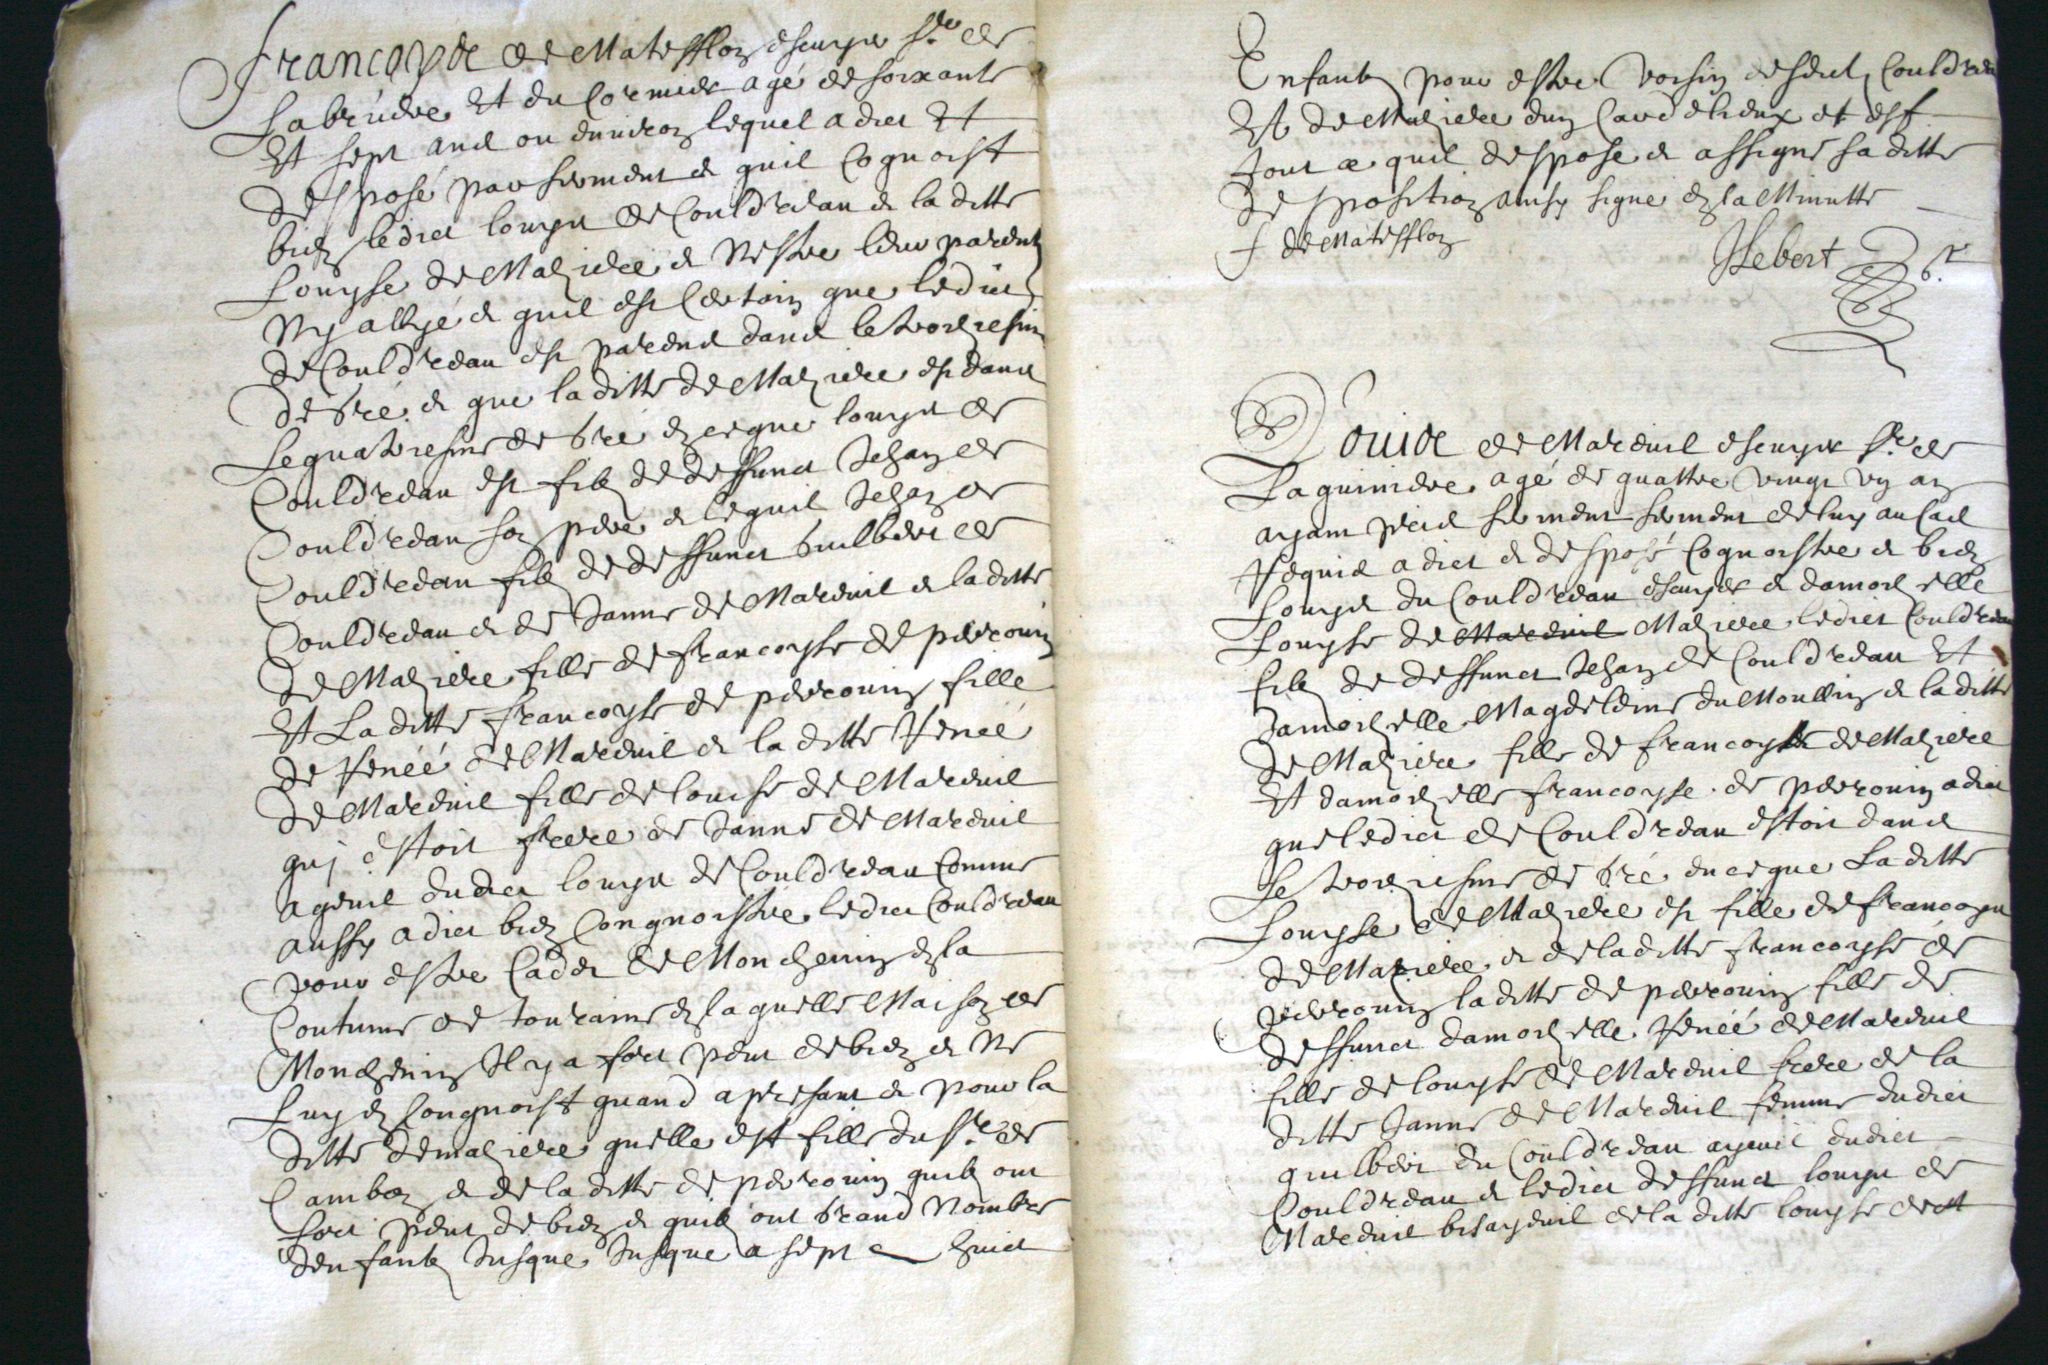 Francoys de Mateffloz escuyer sr. de
Labruere et du Cormier agé de soixante
et sept ans ou environ lequel a dict et
desposé par serment et quil Cognoist
bien ledict louys de Couldreau et la ditte
Louyse de Maziere et Nestre leur parent
Ny allyé et quil est Certain que ledict
de Couldreau est parent dans le troiziesme
degré et que laditte de Maziere est dans
Lequatriesme degré en ce que louys de
Couldreau est filz de deffunct Jehan de
Couldreau son pere et lequel Jehan de
Couldreau filz de deffunct Guilbert de
Couldreau et de Janne de Mareuil et laditte
de Maziere fille de francoyse de perrouin
et La ditte francoyse de perrouin fille
de Renéé de Mareuil et la ditte Renéé
de Mareuil fille de louise de Mareuil
quj estoit frere de Janne de Mareuil
ayeul dudict louys de Couldreau Comme
aussy a dict bien Congnoistre ledict Couldreau
pour estre Cadet de Monchenin en la
Coutume de touraine en laquelle Maison de
Monchenin Il y a fort peut de bien et Ne
Luy en Congnoist quand apresant et pour la
ditte demaziere quelle est fille du sr. de
Cambon et de la ditte de perrouin quilz ont
fort peut de bien et quilz ont Grand Nombre
denfantz Jusque Jusque a sept a huict
Enfantz pour estre Voisin desdictz Couldreau
et de Maziere
tout ce quil despose et assigne sa ditte
desposition ainsy signe en la Minutte
f de Mateffloz
Hebert Gr.
Louise de Mareuil escuyer sr. de
Laguiniere agé de quattre vingt un an
ayant pris serment serment de luy au Cas
Requis a dict et desposé Cognoistre et bien
Louys du Couldreau escuyer et damoizelle
Louyse de Mareuil Maziere ledict Couldreau
filz de deffunct Jehan de Couldreau et
damoizelle Magdeleine du Moullin et la ditte
de Maziere fille de francoys de Maziere
et damoizelle francoyse de perrouin a dict
que ledict de Couldreau estoit dans
Le troiziesme degré en ce que Laditte
Louyse de Maziere est fille de francoys
de Maziere et de laditte francoyse de
perrouin laditte de perrouin fille de
deffunct damoizelle Renéé de Mareuil
fille de louyse de Mareuil frere de la
ditte Janne de Mareuil femme dudict
guilbert du Couldreau ayeul dudict
Couldreau et ledict deffunct louys de
Mareuil bisayeuil de la ditte louyse de